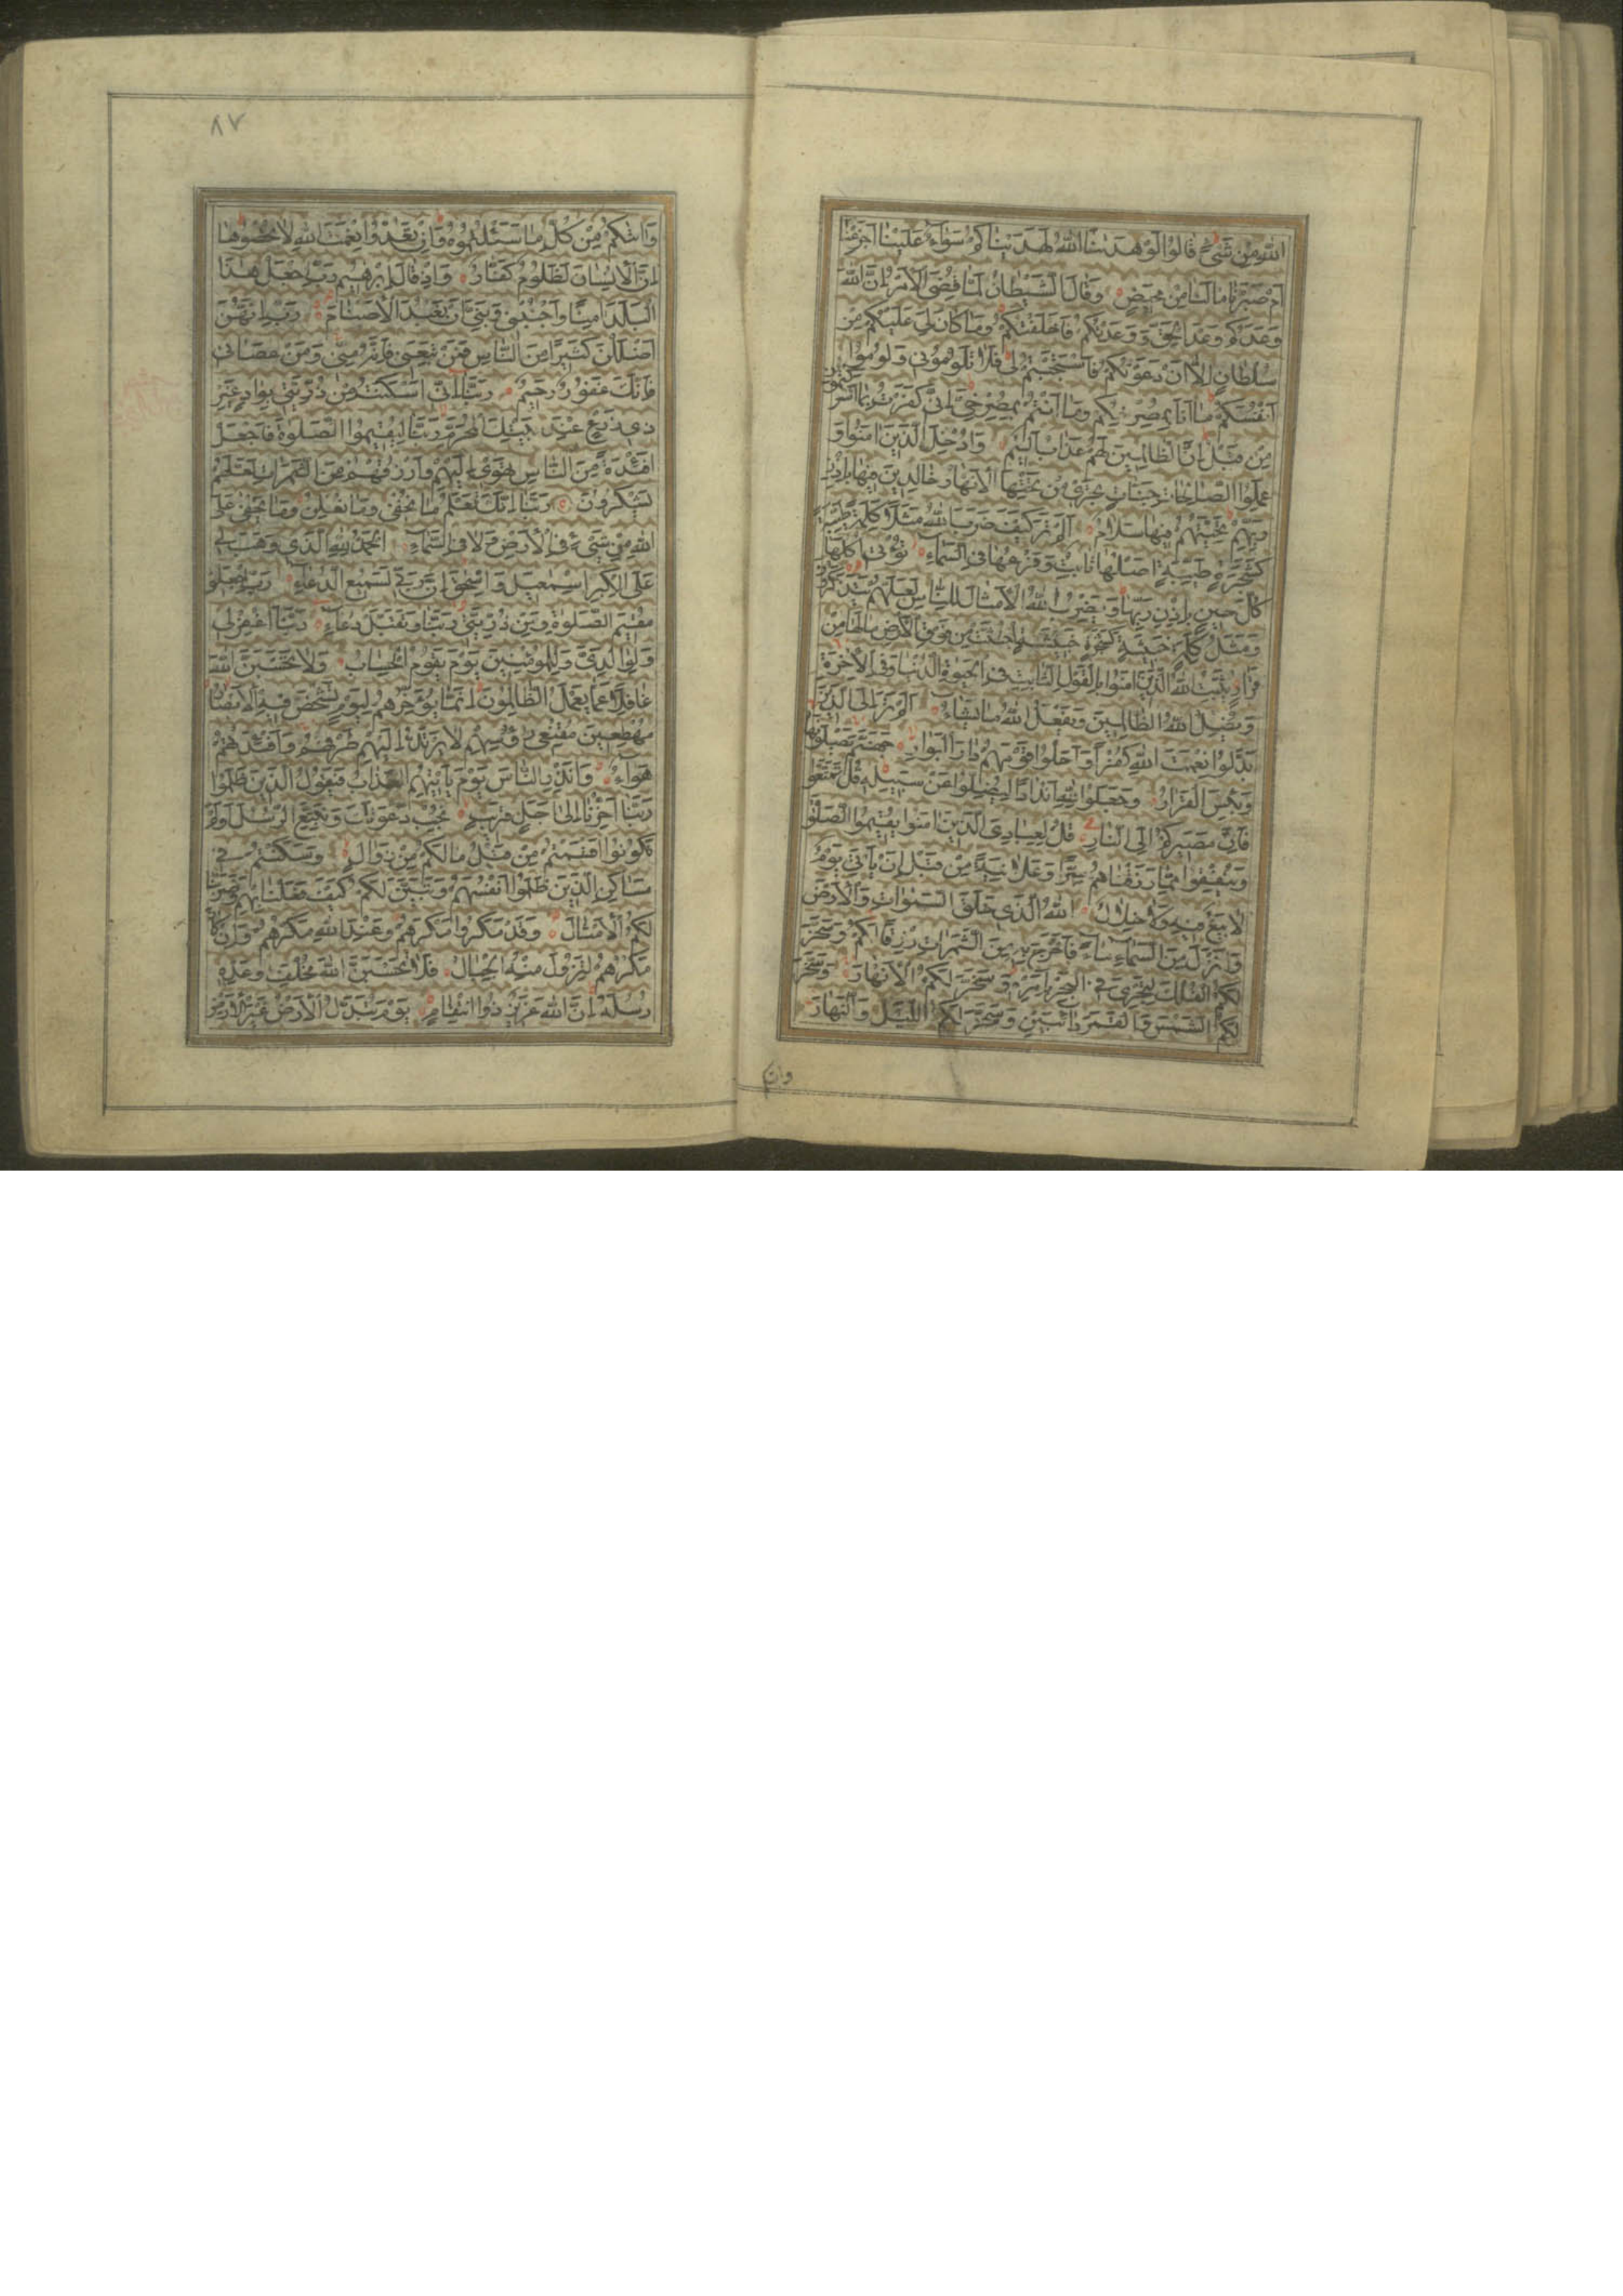 اللَّهِ مِنْ شَيْءٍ قَالُوا لَوْ هَدٰينَا اللَّهُ لَهَدَيْنَاكُمْ سَوَاءٌ عَلَيْنَا أَجَزِعْنَا
أَمْ صَبَرْنَا مَا لَنَا مِنْ مَحِيصٍ وَقَالَ الشَّيْطَانُ لَمَّا قُضِيَ الْأَمْرُ إِنَّ اللَّهَ
وَعَدَكُمْ وَعْدَ الْحَقِّ وَوَعَدْتُكُمْ فَأَخْلَفْتُكُمْ وَمَا كَانَ لِيَ عَلَيْكُمْ مِنْ
سُلْطَانٍ إِلَّا أَنْ دَعَوْتُكُمْ فَاسْتَجَبْتُمْ لِي فَلَا تَلُومُونِي وَلُومُوا
أَنْفُسَكُمْ مَا أَنَا بِمُصْرِخِكُمْ وَمَا أَنْتُمْ بِمُصْرِخِيَّ إِنِّي كَفَرْتُ بِمَا أَشْرَكْتُمُونِ
مِنْ قَبْلُ إِنَّ الظَّالِمِينَ لَهُمْ عَذَابٌ أَلِيمٌ وَأُدْخِلَ الَّذِينَ آمَنُوا وَ
عَمِلُوا الصَّالِحَاتِ جَنَّاتٍ تَجْرِي مِنْ تَحْتِهَا الْأَنْهَارُ خَالِدِينَ فِيهَا بِإِذْنِ
رَبِّهِمْ تَحِيَّتُهُمْ فِيهَا سَلَامٌ أَلَمْ تَرَ كَيْفَ ضَرَبَ اللَّهُ مَثَلًا كَلِمَةً طَيِّبَةً
كَشَجَرَةٍ طَيِّبَةٍ أَصْلُهَا ثَابِتٌ وَفَرْعُهَا فِي السَّمَاءِ تُؤْتِي أُكُلَهَا
كُلَّ حِينٍ بِإِذْنِ رَبِّهَا وَيَضْرِبُ اللَّهُ الْأَمْثَالَ لِلنَّاسِ لَعَلَّهُمْ يَتَذَكَّرُونَ
وَمَثَلُ كَلِمَةٍ خَبِيثَةٍ كَشَجَرَةٍ خَبِيثَةٍ اجْتُثَّتْ مِنْ فَوْقِ الْأَرْضِ مَا لَهَا مِنْ
قَرَارٍ يُثَبِّتُ اللَّهُ الَّذِينَ آمَنُوا بِالْقَوْلِ الثَّابِتِ فِي الْحَيٰوةِ الدُّنْيَا وَفِي الْآخِرَةِ
وَيُضِلُّ اللَّهُ الظَّالِمِينَ وَيَفْعَلُ اللَّهُ مَا يَشَاءُ أَلَمْ تَرَ إِلَى الَّذِينَ
بَدَّلُوا نِعْمَتَ اللَّهِ كُفْرًا وَأَحَلُّوا قَوْمَهُمْ دَارَ الْبَوَارِ جَهَنَّمَ يَصْلَوْنَهَا
وَبِئْسَ الْقَرَارُ وَجَعَلُوا لِلَّهِ أَنْدَادًا لِيُضِلُّوا عَنْ سَبِيلِهِ قُلْ تَمَتَّعُوا
فَإِنَّ مَصِيرَكُمْ إِلَى النَّارِ قُلْ لِعِبَادِيَ الَّذِينَ آمَنُوا يُقِيمُوا الصَّلٰوةَ
وَيُنْفِقُوا مِمَّا رَزَقْنَاهُمْ سِرًّا وَعَلَانِيَةً مِنْ قَبْلِ أَنْ يَأْتِيَ يَوْمٌ
لَا بَيْعٌ فِيهِ وَلَا خِلَالٌ اللَّهُ الَّذِي خَلَقَ السَّمٰوَاتِ وَالْأَرْضَ
وَأَنْزَلَ مِنَ السَّمَاءِ مَاءً فَأَخْرَجَ بِهِ مِنَ الثَّمَرَاتِ رِزْقًا لَكُمْ وَسَخَّرَ
لَكُمُ الْفُلْكَ لِتَجْرِيَ فِي الْبَحْرِ بِأَمْرِهِ وَسَخَّرَ لَكُمُ الْأَنْهَارَ وَسَخَّرَ
لَكُمُ الشَّمْسَ وَالْقَمَرَ دَائِبَيْنِ وَسَخَّرَ لَكُمُ اللَّيْلَ وَالنَّهَارَ
٨٧
وَآتٰيكُمْ مِنْ كُلِّ مَا سَئَلْتُمُوهُ وَإِنْ تَعُدُّوا نِعْمَتَ اللَّهِ لَا تُحْصُوهَا
إِنَّ الْإِنْسَانَ لَظَلُومٌ كَفَّارٌ وَإِذْ قَالَ إِبْرٰهِيمُ رَبِّ اجْعَلْ هٰذَا
الْبَلَدَ آمِنًا وَاجْنُبْنِي وَبَنِيَّ أَنْ نَعْبُدَ الْأَصْنَامَ رَبِّ إِنَّهُنَّ
أَضْلَلْنَ كَثِيرًا مِنَ النَّاسِ فَمَنْ تَبِعَنِي فَإِنَّهُ مِنِّي وَمَنْ عَصَانِي
فَإِنَّكَ غَفُورٌ رَحِيمٌ رَبَّنَا إِنِّي أَسْكَنْتُ مِنْ ذُرِّيَّتِي بِوَادٍ غَيْرِ
ذِي زَرْعٍ عِنْدَ بَيْتِكَ الْمُحَرَّمِ رَبَّنَا لِيُقِيمُوا الصَّلٰوةَ فَاجْعَلْ
أَفْئِدَةً مِنَ النَّاسِ تَهْوِي إِلَيْهِمْ وَارْزُقْهُمْ مِنَ الثَّمَرَاتِ لَعَلَّهُمْ
يَشْكُرُونَ رَبَّنَا إِنَّكَ تَعْلَمُ مَا نُخْفِي وَمَا نُعْلِنُ وَمَا يَخْفٰى عَلَى
اللَّهِ مِنْ شَيْءٍ فِي الْأَرْضِ وَلَا فِي السَّمَاءِ الْحَمْدُ لِلَّهِ الَّذِي وَهَبَ لِي
عَلَى الْكِبَرِ إِسْمٰعِيلَ وَإِسْحٰقَ إِنَّ رَبِّي لَسَمِيعُ الدُّعَاءِ رَبِّ اجْعَلْنِي
مُقِيمَ الصَّلٰوةِ وَمِنْ ذُرِّيَّتِي رَبَّنَا وَتَقَبَّلْ دُعَاءِ رَبَّنَا اغْفِرْ لِي
وَلِوَالِدَيَّ وَلِلْمُؤْمِنِينَ يَوْمَ يَقُومُ الْحِسَابُ وَلَا تَحْسَبَنَّ اللَّهَ
غَافِلًا عَمَّا يَعْمَلُ الظَّالِمُونَ إِنَّمَا يُؤَخِّرُهُمْ لِيَوْمٍ تَشْخَصُ فِيهِ الْأَبْصَارُ
مُهْطِعِينَ مُقْنِعِي رُءُوسِهِمْ لَا يَرْتَدُّ إِلَيْهِمْ طَرْفُهُمْ وَأَفْئِدَتُهُمْ
هَوَاءٌ وَأَنْذِرِ النَّاسَ يَوْمَ يَأْتِيهِمُ الْعَذَابُ فَيَقُولُ الَّذِينَ ظَلَمُوا
رَبَّنَا أَخِّرْنَا إِلٰى أَجَلٍ قَرِيبٍ نُجِبْ دَعْوَتَكَ وَنَتَّبِعِ الرُّسُلَ أَوَلَمْ
تَكُونُوا أَقْسَمْتُمْ مِنْ قَبْلُ مَا لَكُمْ مِنْ زَوَالٍ وَسَكَنْتُمْ فِي
مَسَاكِنِ الَّذِينَ ظَلَمُوا أَنْفُسَهُمْ وَتَبَيَّنَ لَكُمْ كَيْفَ فَعَلْنَا بِهِمْ وَضَرَبْنَا
لَكُمُ الْأَمْثَالَ وَقَدْ مَكَرُوا مَكْرَهُمْ وَعِنْدَ اللَّهِ مَكْرُهُمْ وَإِنْ كَانَ
مَكْرُهُمْ لِتَزُولَ مِنْهُ الْجِبَالُ فَلَا تَحْسَبَنَّ اللَّهَ مُخْلِفَ وَعْدِهِ
رُسُلَهُ إِنَّ اللَّهَ عَزِيزٌ ذُو انْتِقَامٍ يَوْمَ تُبَدَّلُ الْأَرْضُ غَيْرَ الْأَرْضِ